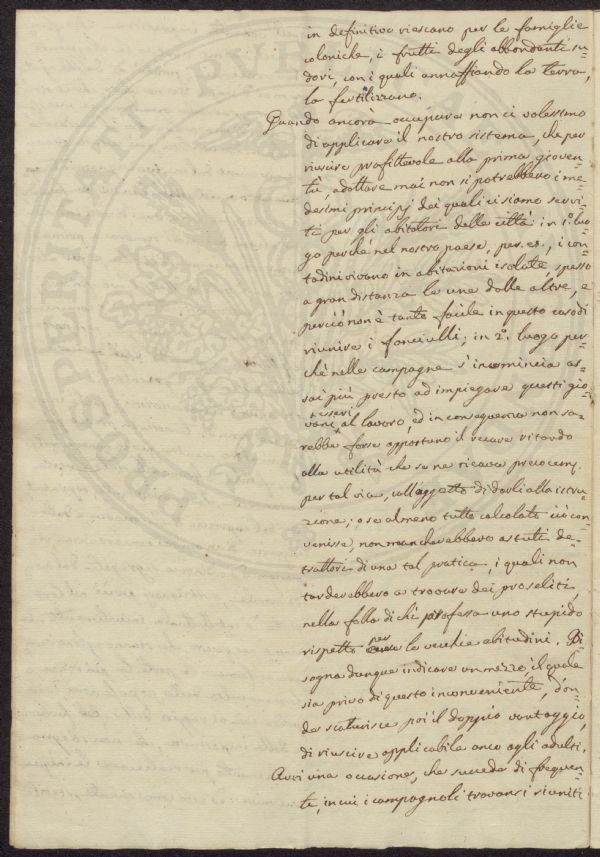 in definitivo riescano per le famiglie
coloniche, i frutti degli abbondanti su=
dori, con i quali annaffiando la terra,
la fertilizzano.
Quando ancora occupare non ci volessimo
di applicare il nostro sistema, che per
riuscire profittevole alla prima gioven=
tù, adottare mai non si potrebbero i me=
desimi principj dei quali ci siamo servi=
ti per gli abitatori delle città: in 1.° luo=
go perchè nel nostro paese, per. es., i con=
tadini vivano in abitazioni isolate, spesso
a gran distanza le une dalle altre, e
perciò non è tanto facile in questo caso di
riunire i fanciulli; in 2.° luogo per=
chè nelle campagne s'incomincia as=
sai più presto ad impiegare questi gio=
vani tesseri al lavoro, ed in conseguenza non sa=
rebbe forse opportuno il recare ritardo
alla utilità che se ne ricava
per tal via, coll'oggetto di darli alla istru=
zione; o se almeno tutto calcolato ciò con=
venisse, non mancherebbero astuti de=
trattori di una tal pratica, i quali non
tarderebbero a trovare dei proseliti,
nella folla di chi professa uno stupido
rispetto per le vecchie abitudini. Bi=
sogna dunque indicare un mezzo, il quale
sia privo di questo inconveniente, d'on=
de scaturisce poi il doppio vantaggio,
di riuscire applicabile anco agli adulti.
Avvi una occasione, che succede di frequen=
te, in cui i campagnoli trovansi riuniti